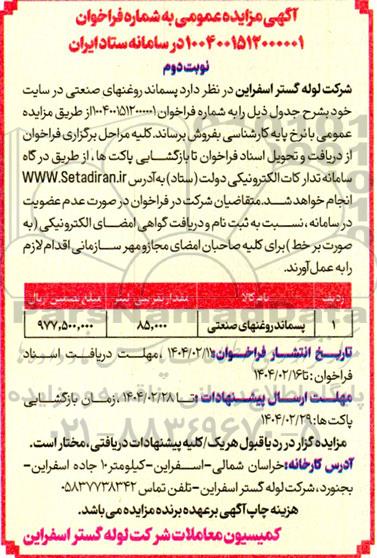 آگهی مزایده عمومی به شماره فراخوان
۱۰۰۴۰۰۱۵۱۲۰۰۰۰۰۱ در سامانه ستاد ایران
نوبت دوم
شرکت لوله گستر اسفراین در نظر دارد پسماند روغنهای صنعتی در سایت
خود بشرح جدول ذیل را به شماره فراخوان ۱۰۰۴۰۰۱۵۱۲۰۰۰۰۰۱ از طریق مزایده
عمومی با نرخ پایه کارشناسی بفروش برساند. کلیه مراحل برگزاری فراخوان
از دریافت و تحویل اسناد فراخوان تا بازگشایی پاکت ها، از طریق درگاه
سامانه تدارکات الکترونیکی دولت (ستاد) به آدرس WWW.Setadiran.ir
انجام خواهد شد. متقاضیان شرکت در فراخوان در صورت عدم عضویت
در سامانه، نسبت به ثبت نام و دریافت گواهی امضای الکترونیکی (به
صورت بر خط) برای کلیه صاحبان امضای مجاز و مهر سازمانی اقدام لازم
را به عمل آورند.
ردیف نام کالا مقدار تقریبی لیتر مبلغ تضمین ریال
۱ پسماند روغنهای صنعتی ۸۵,۰۰۰ ۹۷۷,۵۰۰,۰۰۰
تاریخ انتشار فراخوان: ۱۴۰۴/۰۲/۱۱ ، مهلت دریافت اسناد
فراخوان: تا ۱۴۰۴/۰۲/۱۶
مهلت ارسال پیشنهادات: تا ۱۴۰۴/۰۲/۲۸، زمان بازگشایی
پاکت ها: ۱۴۰۴/۰۲/۲۹
مزایده گزار در رد یا قبول هر یک/کلیه پیشنهادات دریافتی، مختار است.
آدرس کارخانه: خراسان شمالی-اسفراین-کیلومتر ۱۰ جاده اسفراین-
بجنورد، شرکت لوله گستر اسفراین-تلفن تماس ۰۵۸۳۷۷۳۸۳۴۲
هزینه چاپ آگهی بر عهده برنده مزایده می باشد.
کمیسیون معاملات شرکت لوله گستر اسفراین